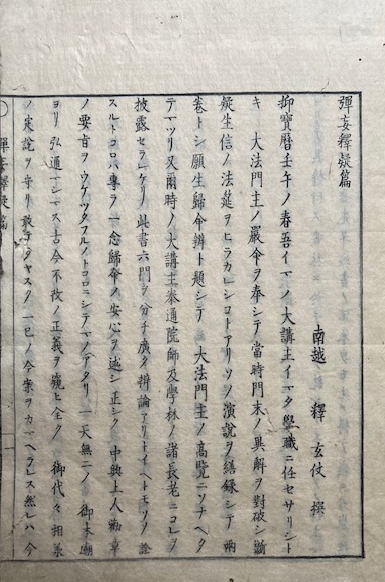 彈妄釋疑篇
南越 釋 玄伎 撰
抑寶曆壬午ノ春吾イマノ大講主イマタ學職ニ任セサリシト
キ 大法門主ノ嚴命ヲ奉シテ當時門末ノ異解ヲ對破シ斷
疑生信ノ法莚ヲヒラカレシコトアリソノ演說ヲ繕録シテ兩
卷トシ願生歸命辨ト題シテ 大法門主ノ高覽ニソナヘタ
テマツリ又爾時ノ大講主泰通院師及學林ノ諸長老ニコレヲ
披露セラレケリ此書六門ヲ分チ廣ク辨論アリトイヘトモソノ詮
スルトコロハ專ラ一念歸命ノ安心ヲ述シ正シク 中興上人勸章
ノ要旨ヲウケツタフルノトコロニシテマノアタリ一天無二ノ 御本廟
ヨリ弘通マシマス古今不改ノ正義ヲ窺ヒ全ク 御代々相承
ノ実說ヲ守リ敢テタヤスク一已ノ今案ヲカマヘラレス然レハ今
彈妄釋疑篇